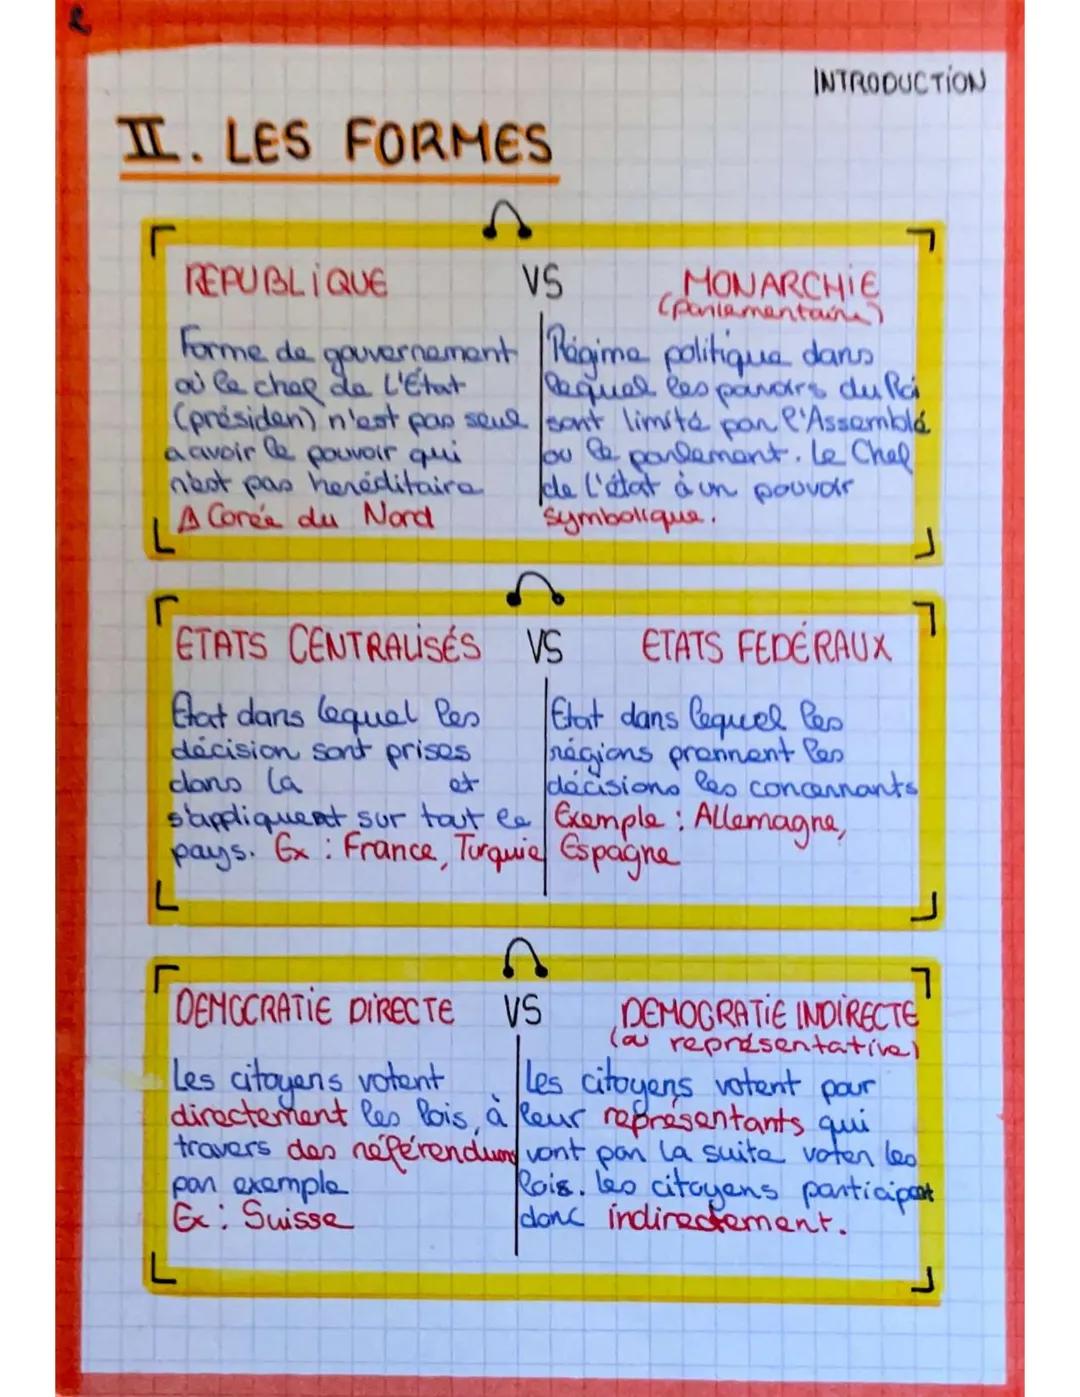 2
INTRODUCTION
II. LES FORMES
REPUBLIQUE VS MONARCHIE
(parlementaire)
Forme de gouvernement
où le chef de l'État
(présiden) n'est pas seul
a avoir le pouvoir qui
n'est pas heréditaire
⚠ Corée du Nord
Régime politique dans
lequel les pouvoirs du Roi
sont limité par l'Assemblé
ou le parlement. Le Chef
de l'état à un pouvoir
symbolique.
ETATS CENTRALISÉS VS ETATS FEDÉRAUX
Etat dans lequel les
décision sont prises
dans la et
s'appliquent sur tout le
pays. Ex : France, Turquie
Etat dans lequel les
régions prennent les
décisions les concernants
Exemple : Allemagne,
Espagne
DEMOCRATIE DIRECTE VS DEMOCRATIE INDIRECTE
(ou représentative)
Les citoyens votent
directement les lois, à
travers des référendums
par exemple
Ex : Suisse
Les citoyens votent pour
leur représentants qui
vont par la suite voter les
lois. les citoyens participent
donc indirectement.